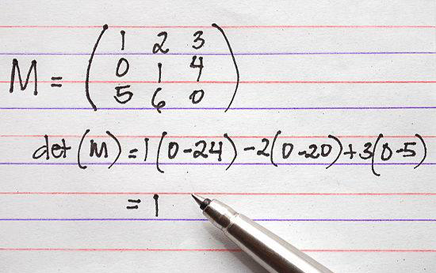 M = ( 1 2 3
0 1 4
5 6 0 )
det (M) = 1(0-24) - 2(0-20) + 3(0-5)
= 1